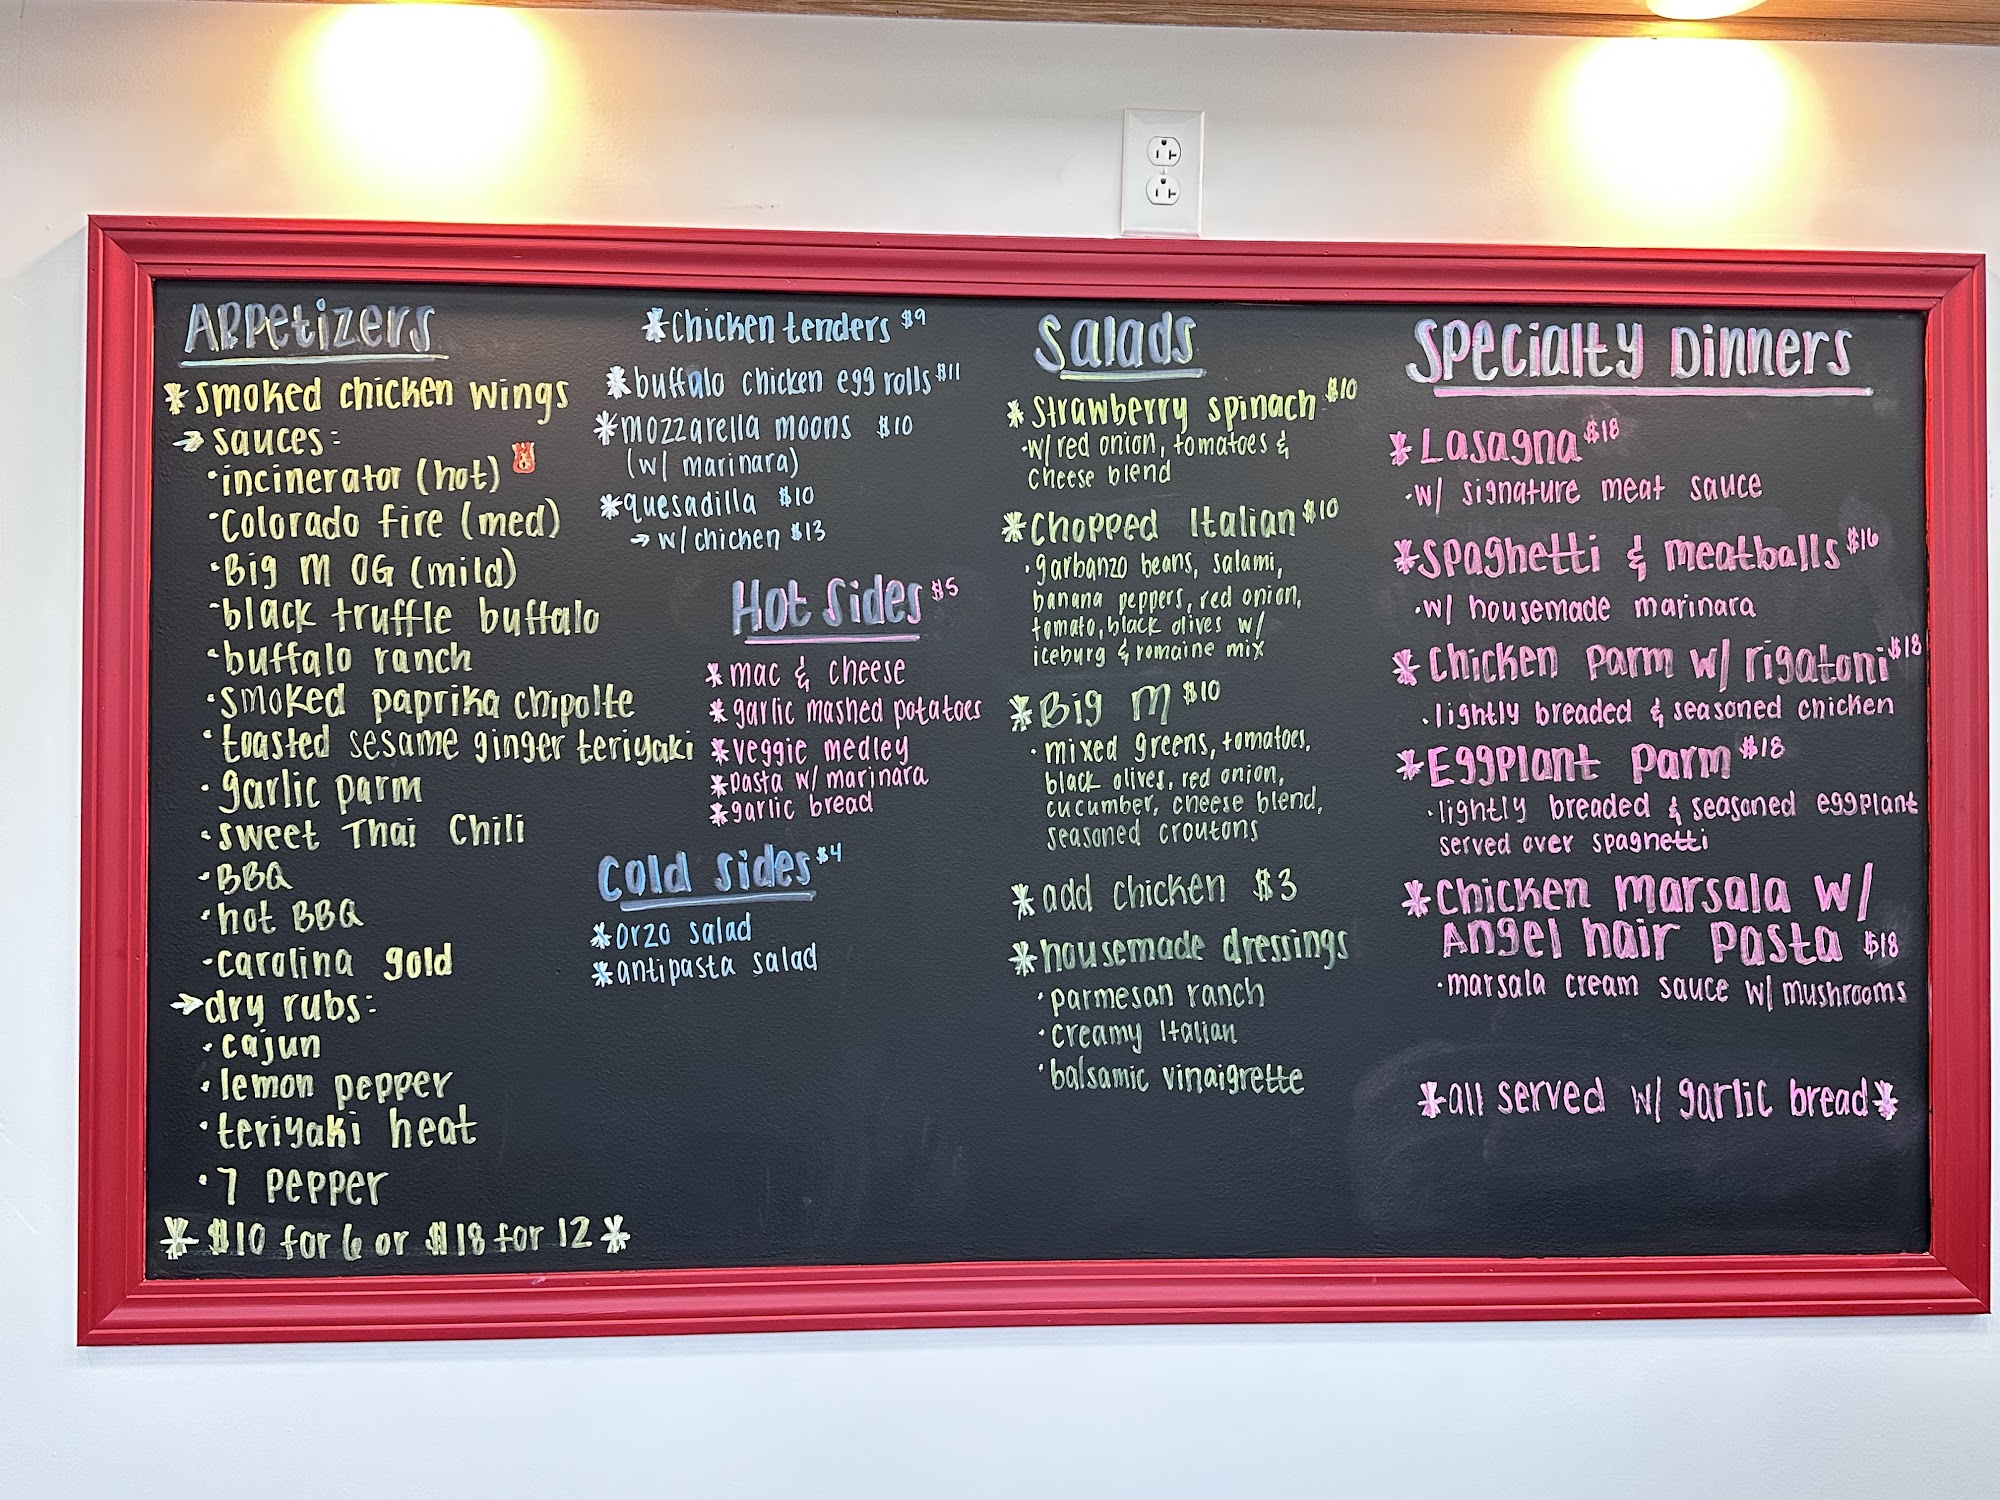 Appetizers
*smoked chicken wings
→ sauces:
·incinerator (hot)
·Colorado fire (med)
·Big M OG (mild)
·black truffle buffalo
·buffalo ranch
·smoked paprika chipolte
·toasted sesame ginger teriyaki
·garlic parm
·sweet Thai Chili
·BBQ
·hot BBQ
·carolina gold
→dry rubs:
·cajun
·lemon pepper
·teriyaki heat
·7 pepper
*$10 for 6 or $18 for 12*
*Chicken tenders $9
*buffalo chicken egg rolls $11
*mozzarella moons $10
(w/ marinara)
*quesadilla $10
→ w/ chicken $13
Hot Sides $5
*mac & cheese
*garlic mashed potatoes
*veggie medley
*pasta w/ marinara
*garlic bread
Cold Sides $4
*orzo salad
*antipasta salad
Salads
*Strawberry spinach $10
·w/ red onion, tomatoes &
cheese blend
*Chopped Italian $10
·garbanzo beans, salami,
banana peppers, red onion,
tomato, black olives w/
iceburg & romaine mix
*Big M $10
·mixed greens, tomatoes,
black olives, red onion,
cucumber, cheese blend,
seasoned croutons
*add chicken $3
*housemade dressings
·parmesan ranch
·creamy Italian
·balsamic vinaigrette
Specialty Dinners
*Lasagna $18
·w/ signature meat sauce
*Spaghetti & meatballs $16
·w/ housemade marinara
*Chicken Parm w/ rigatoni $18
·lightly breaded & seasoned chicken
*Eggplant Parm $18
·lightly breaded & seasoned eggplant
served over spaghetti
*Chicken Marsala w/
Angel hair Pasta $18
·marsala cream sauce w/ mushrooms
*all served w/ garlic bread*